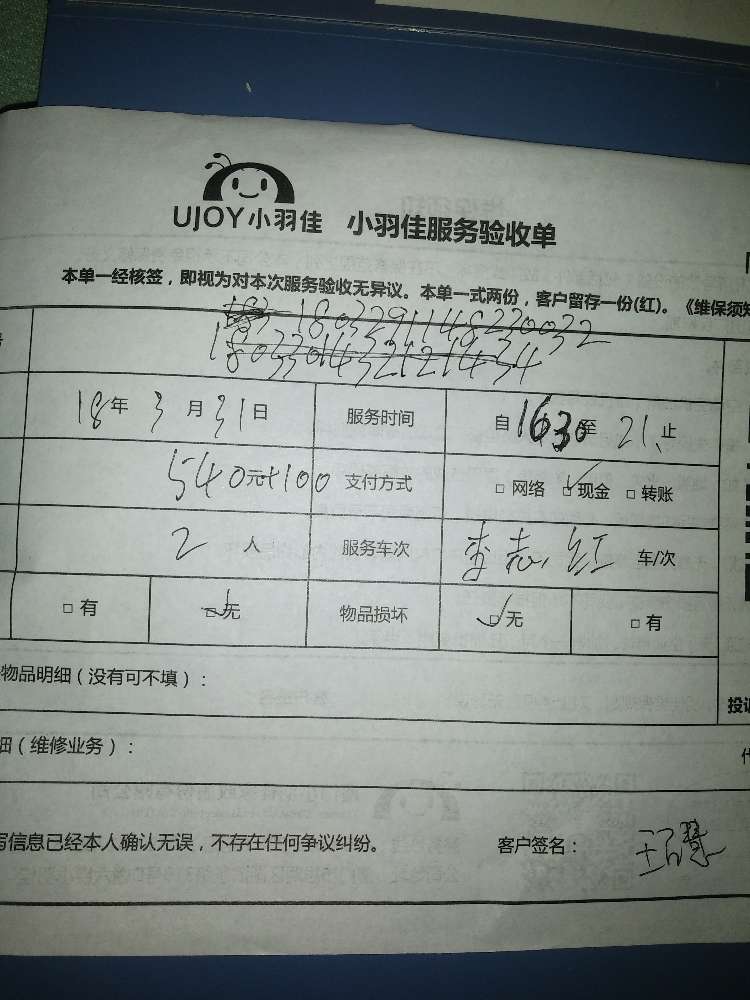 UJOY小羽佳 小羽佳服务验收单
本单一经核签，即视为对本次服务验收无异议。本单一式两份，客户留存一份(红)。《维保须知
1803291148230032
1803301432121434
18年 3月 31日 服务时间 自1630至 21、止
540元+100 支付方式 □ 网络 □ 现金 □ 转账
2 人 服务车次 李志红 车/次
□ 有 □ 无 物品损坏 □ 无 □ 有
物品明细（没有可不填）：
投诉
细（维修业务）：
写信息已经本人确认无误，不存在任何争议纠纷。 客户签名：